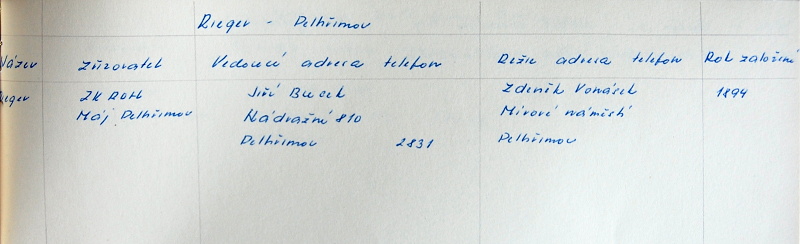 Rieger - Pelhřimov
Název Zřizovatel Vedoucí adresa telefon Režie adresa telefon Rok založení
Rieger ZK ROH Jiří Bucek Zdeněk Vonásek 1894
Máj Pelhřimov Nádražní 810 Mírové náměstí
Pelhřimov 2831 Pelhřimov